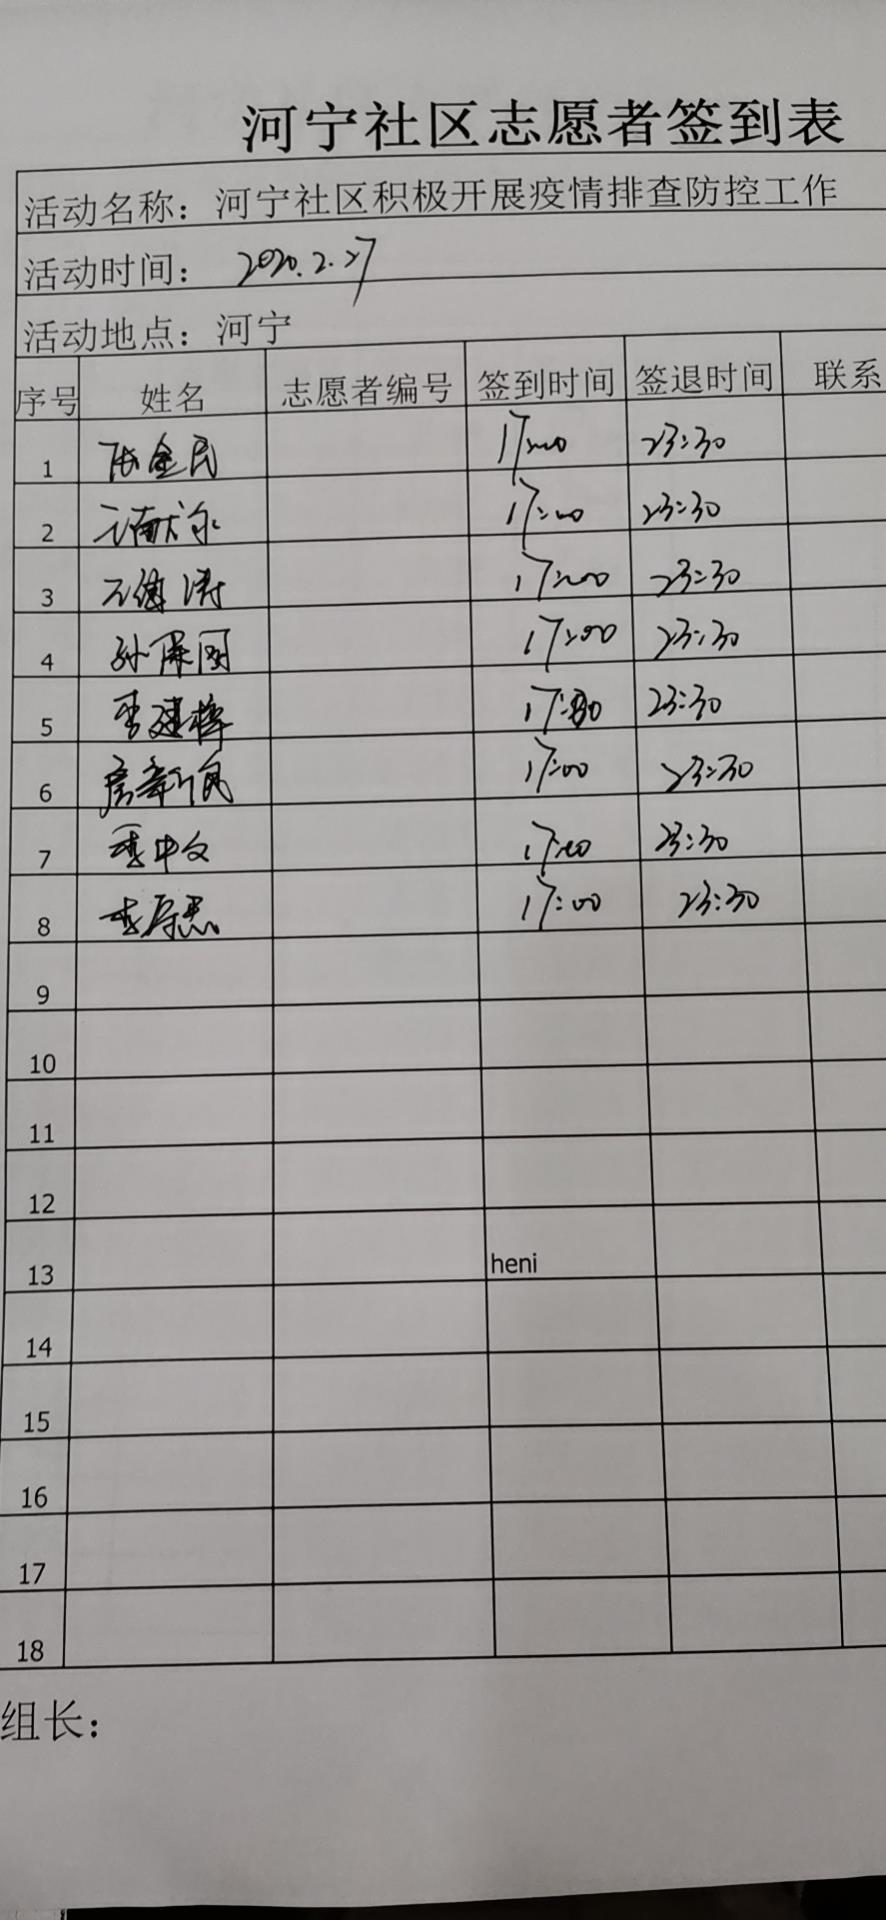 河宁社区志愿者签到表
活动名称：河宁社区积极开展疫情排查防控工作
活动时间： 2020.2.27
活动地点：河宁
序号 姓名 志愿者编号 签到时间 签退时间 联系
1 张金民 17:00 23:30
2 17:00 23:30
3 17:00 23:30
4 孙保国 17:00 23:30
5 李建 23:30
6 房新民 17:00 23:30
7 季中文 17:00 23:30
8 17:00 23:30
9
10
11
12
13 heni
14
15
16
17
18
组长：